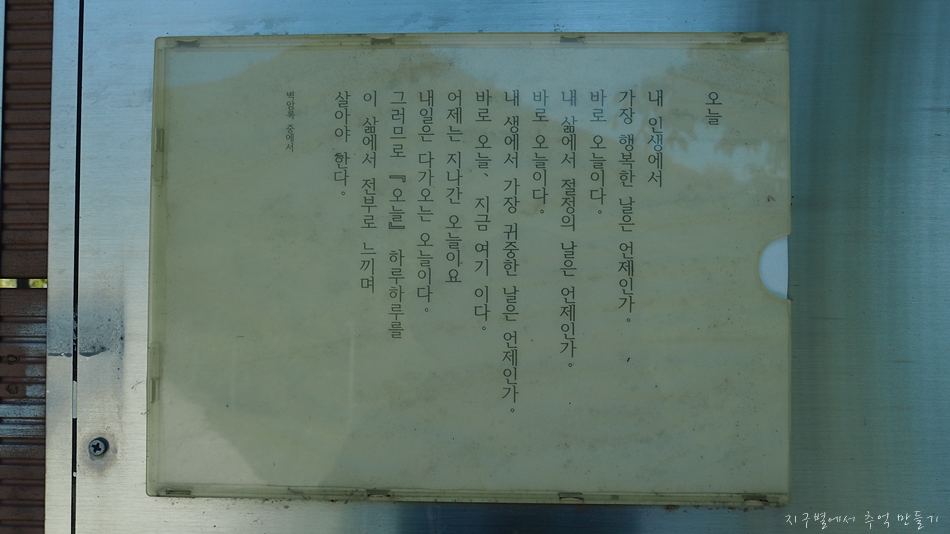 오늘
내 인생에서
가장 행복한 날은 언제인가.
바로 오늘이다.
내 삶에서 절정의 날은 언제인가.
바로 오늘이다.
내 생에서 가장 귀중한 날은 언제인가.
바로 오늘、 지금 여기 이다.
어제는 지나간 오늘이요
내일은 다가오는 오늘이다.
그러므로 『오늘』 하루하루를
이 삶에서 전부로 느끼며
살아야 한다.
벽암록 중에서
지구별에서 추억 만들기